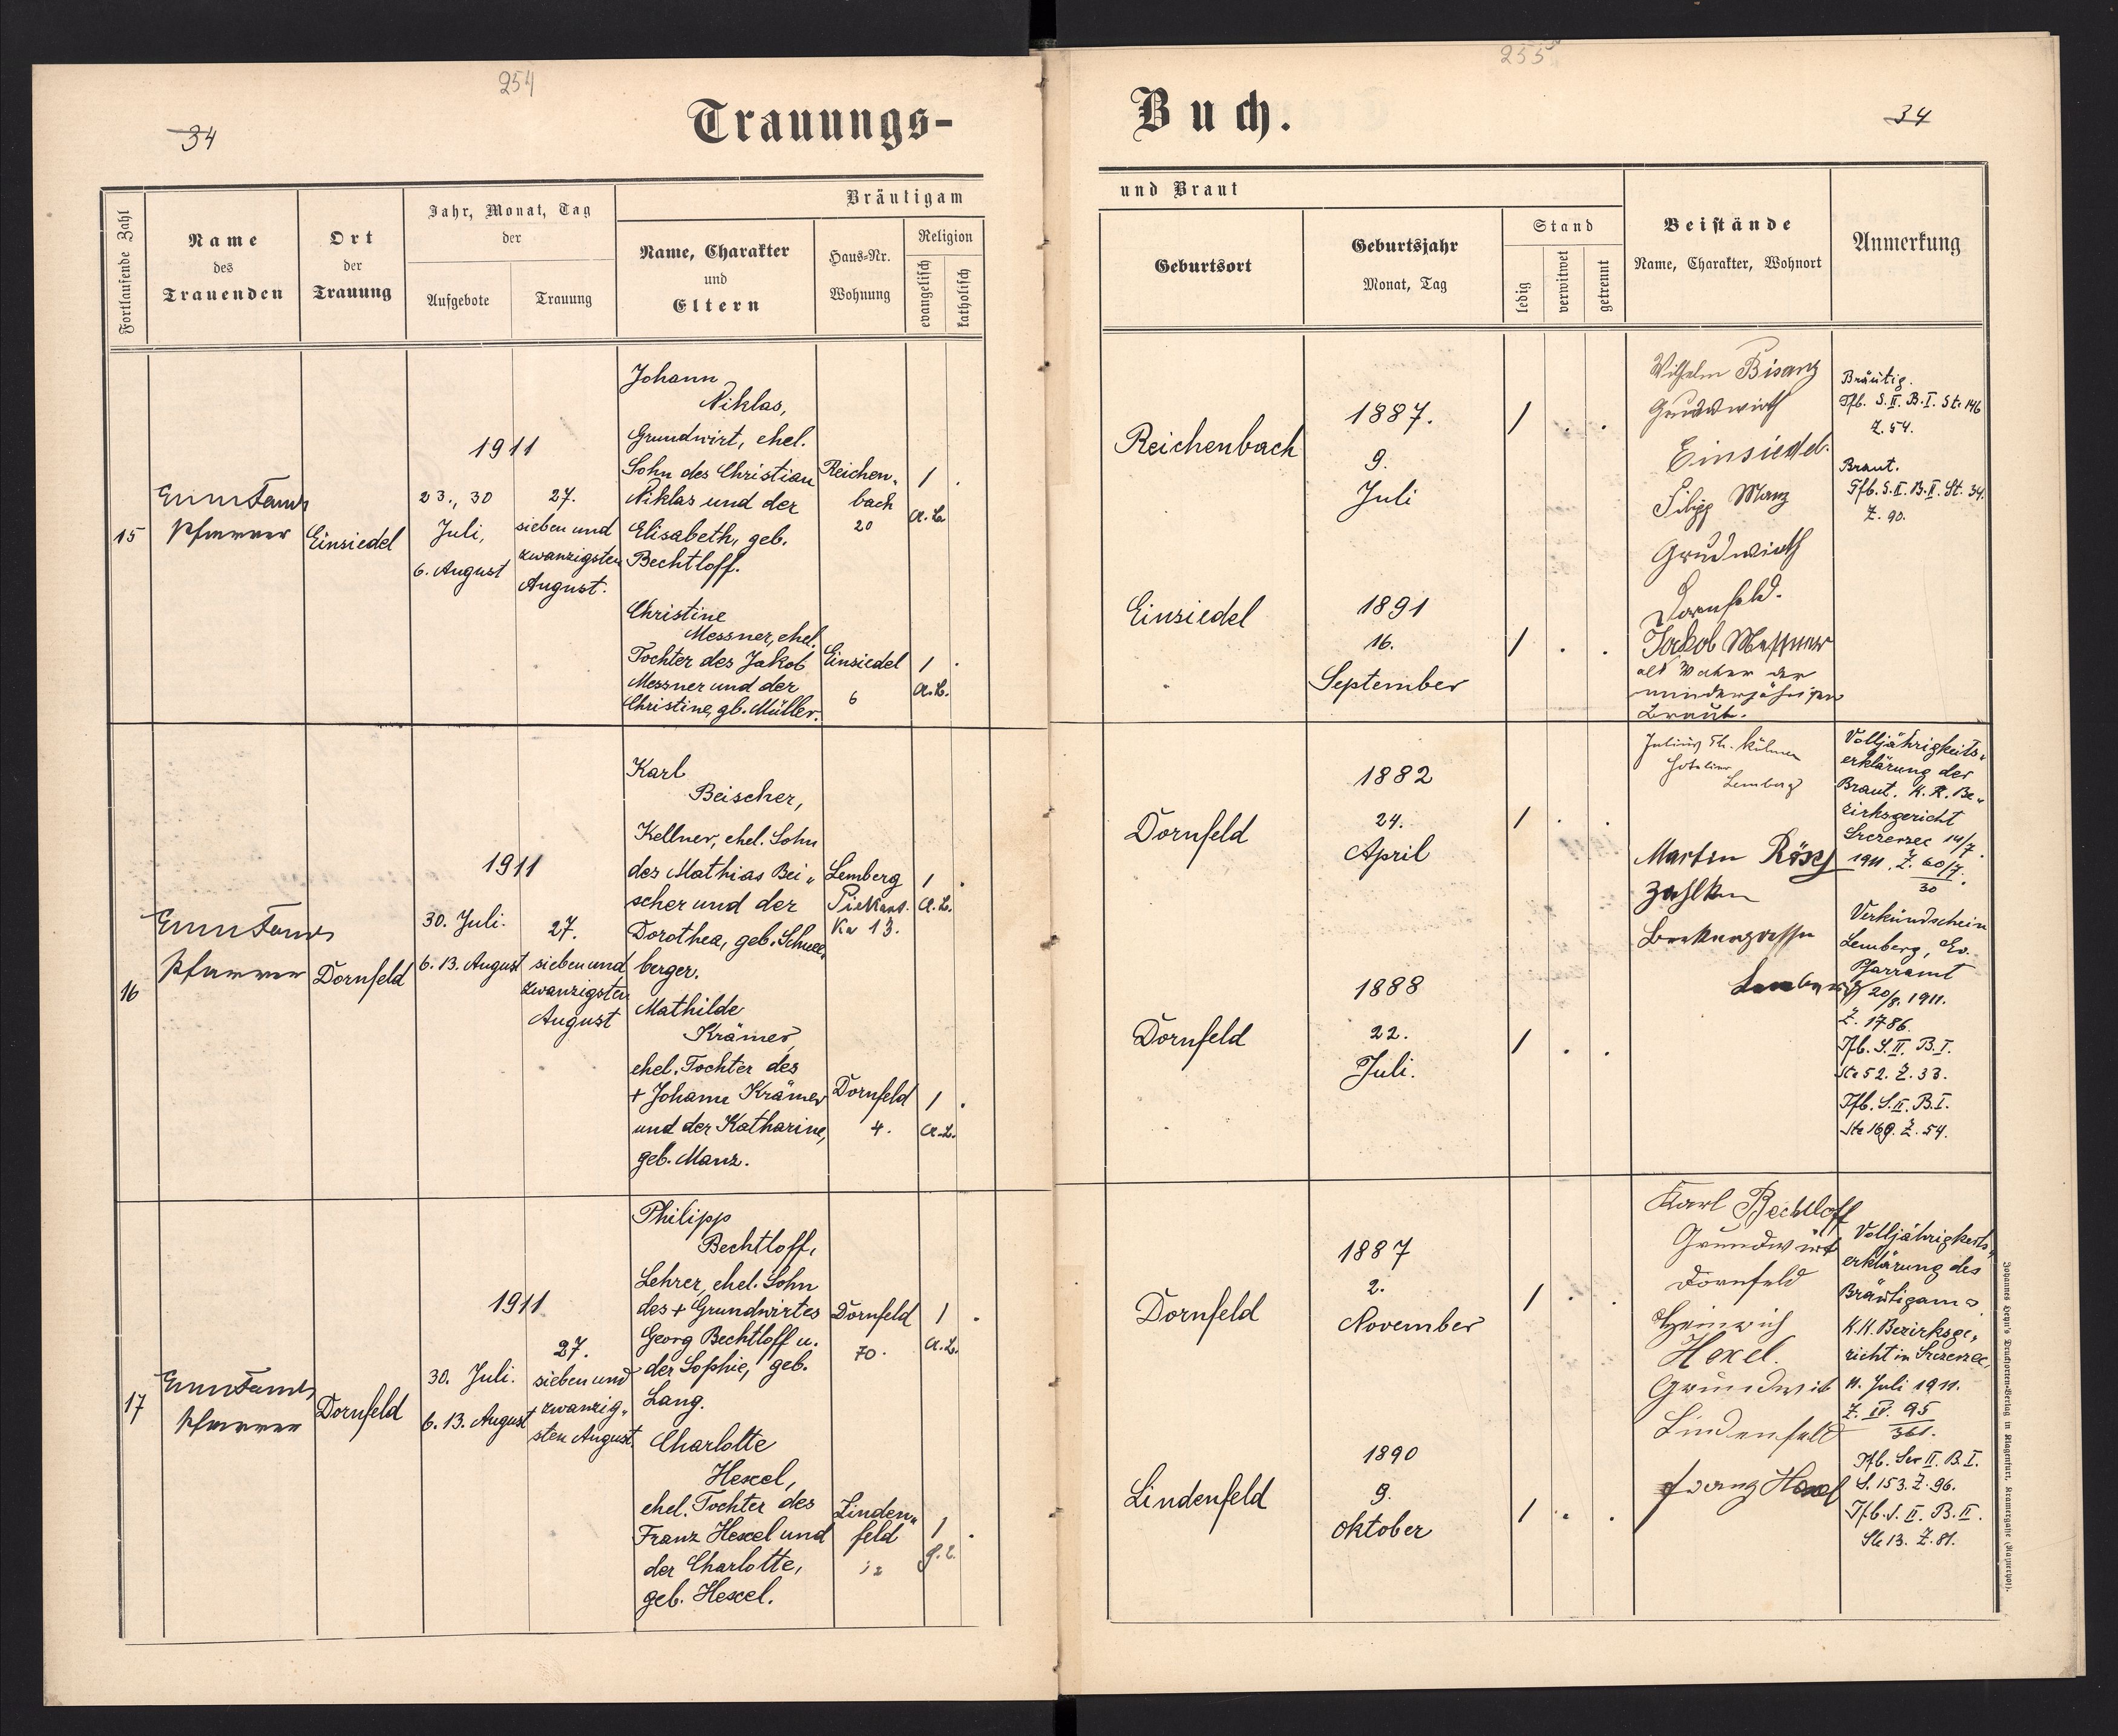 254
34
Trauungs-
Fortlaufende Zahl
Name
des
Trauenden
Ort
der
Trauung
Jahr, Monat, Tag
der
Aufgebote
Trauung
Bräutigam
Name, Charakter
und
Eltern
Haus-Nr.
Wohnung
Religion
evangelisch
katholisch
15
Pfarrer
Einsiedel
1911
23., 30
Juli,
6. August
27.
sieben und
zwanzigsten
August.
Johann
Niklas,
Grundwirt, ehel.
Sohn des Christian
Niklas und der
Elisabeth, geb.
Bechtloff.
Reichen„
bach
20
1 .
A.B.
Christine
Messner, ehel.
Tochter des Jakob
Messner und der
Christine, gb. Müller.
Einsiedel
6
1 .
A.B.
16
Pfarrer
Dornfeld
1911
30. Juli.
6. 13. August
27.
sieben und
zwanzigsten
August
Karl
Beischer,
Kellner, ehel. Sohn
des Mathias Bei„
scher und der
Dorothea, geb. Schnee„
berger.
Lemberg
Piekars.
Ka 13.
1 .
A.B.
Mathilde
Krämer,
ehel. Tochter des
+ Johann Krämer
und der Katharine,
geb. Manz.
Dornfeld
4.
1 .
A.B.
17
Pfarrer
Dornfeld
1911
30. Juli.
6. 13. August
27.
sieben und
zwanzig„
sten August.
Philipp
Bechtloff,
Lehrer, ehel. Sohn
des + Grundwirtes
Georg Bechtloff u.
der Sophie, geb.
Lang.
Dornfeld
70.
1 .
A.B.
Charlotte
Hexel,
ehel. Tochter des
Franz Hexel und
der Charlotte,
geb. Hexel.
Linden„
feld
12
1 .
255
Buch.
34
und Braut
Geburtsort
Geburtsjahr
Monat, Tag
Stand
ledig
verwitwet
getrennt
Beistände
Name, Charakter, Wohnort
Anmerkung
Reichenbach
1887.
9.
Juli
1 . .
Einsiedel
1891
16.
September
1 . .
Wilhelm Bisanz
Grundwirth
Einsiedel.
Filipp Manz
Grudwirth
Dornfeld.
Jakob Messner
als Vater der
minderjährigen
Braut.
Bräutig.
Tfb. S. II. B. I. St. 146
Z. 54.
Braut.
Tfb. S. II. B. II. St. 34.
Z. 90.
Dornfeld
1882
24.
April
1 . .
Dornfeld
1888
22.
Juli.
1 . .
Julius Th.
Hotelier
Lemberg
Martin Rösch
Zahlkn
Lemberg
Volljährigkeits„
erklärung der
Braut. K. K. Be„
zirksgericht
Szczerzec 14/7.
1911. Z. 60/7.
30
Verkündschein
Lemberg, Ev.
Pfarramt
20/8. 1911.
Z. 1786.
Tfb. S. II. B. I.
Ste 52. Z. 33.
Tfb. S. II. B. I.
Ste 169. Z. 54.
Dornfeld
1887
2.
November
1 . .
Lindenfeld
1890
9.
Oktober
1 . .
Karl Bechtloff
Grundwirt
Dornfeld
Heinrich
Hexel.
Grundwirt
Lindenfeld
Franz Hexel
Volljährigkeits„
erklärung des
Bräutigams.
K. K. Bezirksge„
richt in Szczerzec,
11. Juli 1911.
Z. IV. 95
361.
Tfb. Ser II. B. I.
S. 153. Z. 96.
Tfb. S. II. B. II.
Ste 13. Z. 81.
Johannes Heyn's Drucksorten-Verlag in Klagenfurt, Kramergasse (Kasperhof).